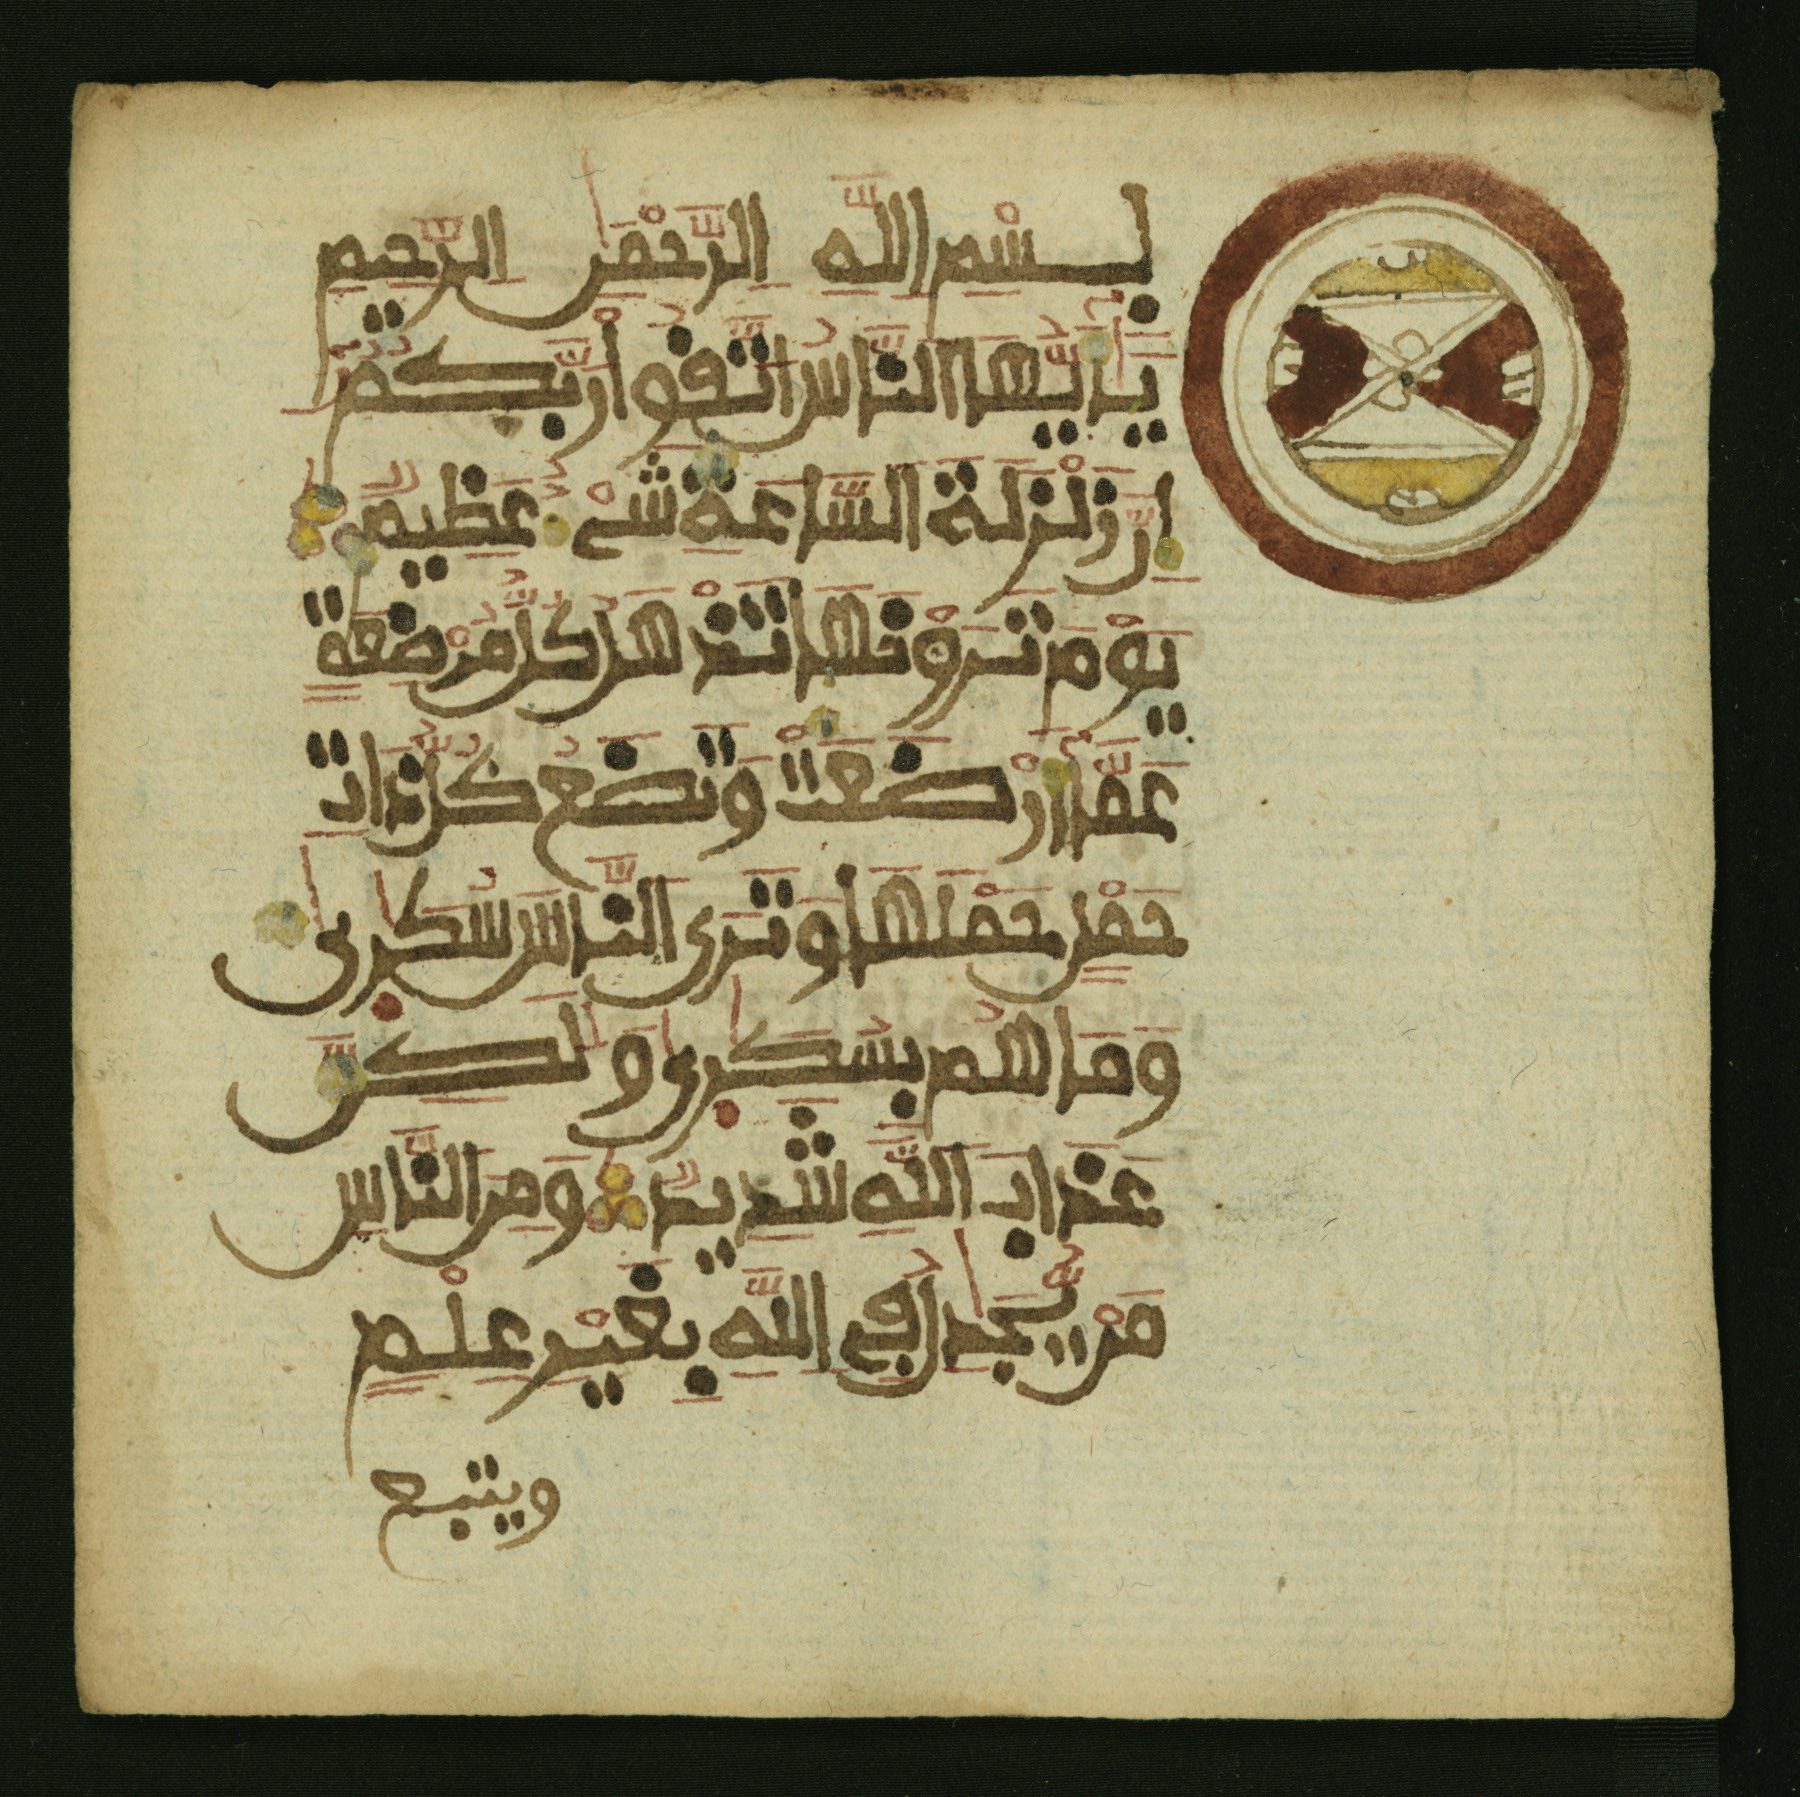 بسم الله الرحمن الرحيم
يأيها الناس اتقوا ربكم
إن زلزلة الساعة شيء عظيم
يوم ترونها تذهل كل مرضعة
عما أرضعت وتضع كل ذات
حمل حملها وترى الناس سكرى
وما هم بسكرى ولكن
عذاب الله شديد ومن الناس
من يجدل في الله بغير علم
ويتبع